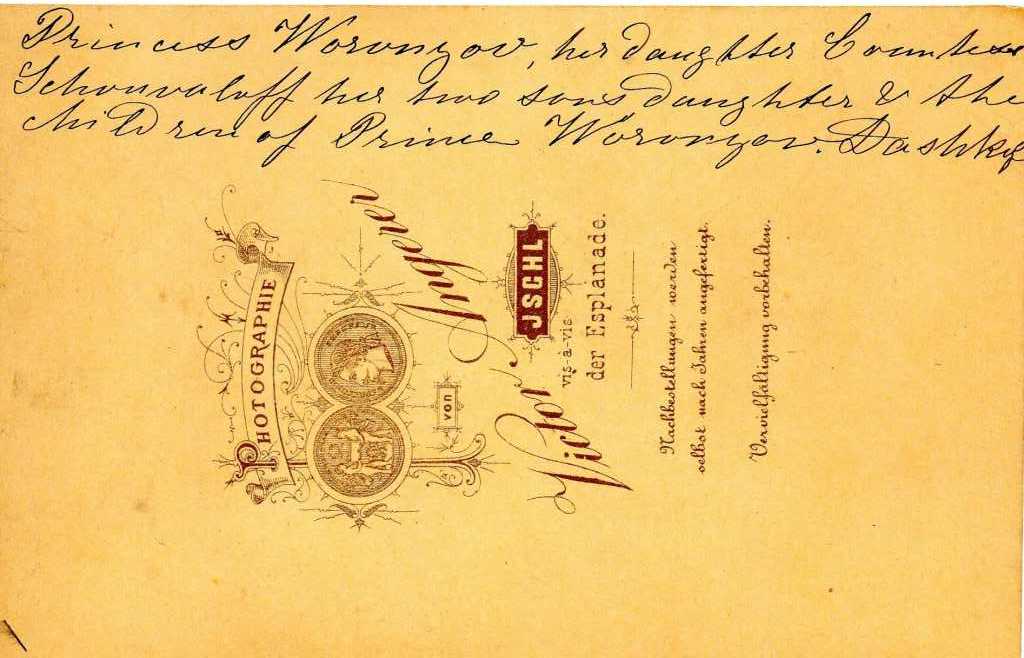 Princess Woronzov, her daughter Countess
Schouvaloff her two sons daughter & the
children of Prince Woronzov. Dashkof
PHOTOGRAPHIE
von
Victor Angerer
JSCHL
vis-à-vis
der Esplanade.
Nachbestellungen werden
selbst nach Jahren angefertigt.
Vervielfältigung vorbehalten.